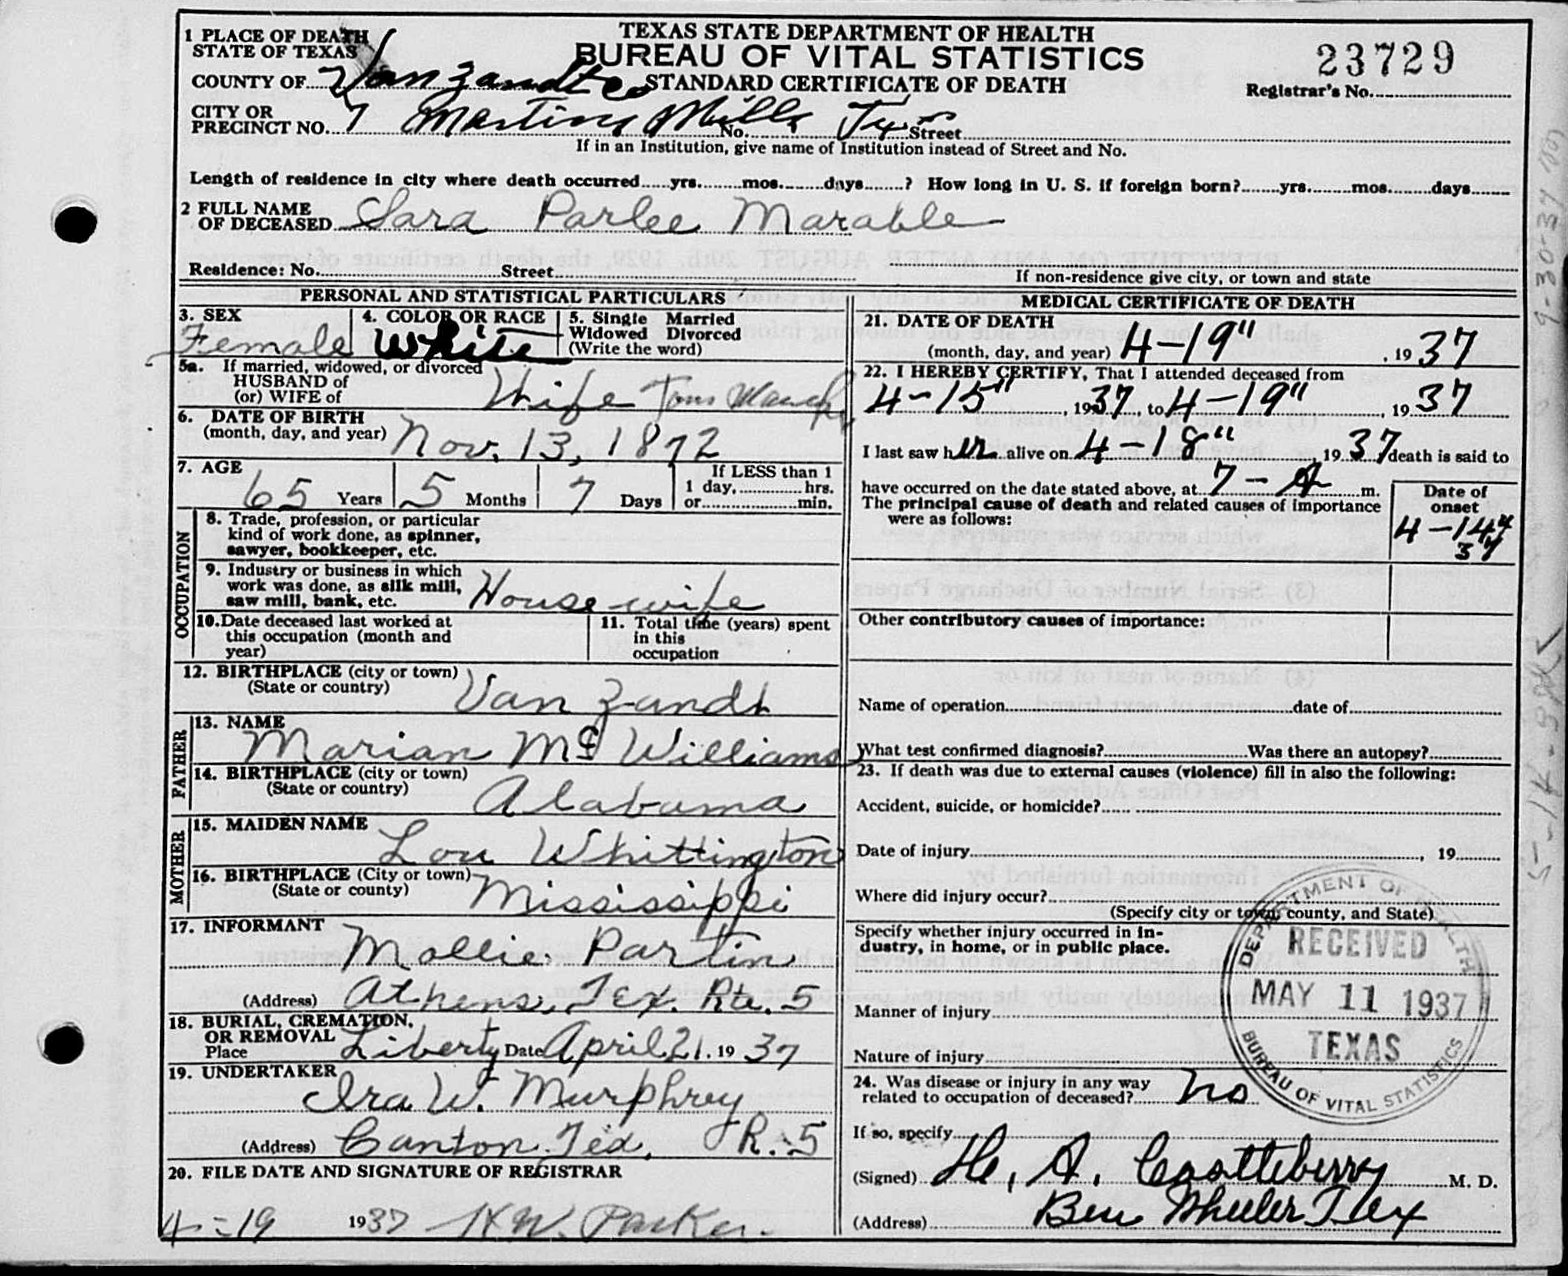 TEXAS STATE DEPARTMENT OF HEALTH
BUREAU OF VITAL STATISTICS
STANDARD CERTIFICATE OF DEATH
23729
Registrar's No.
1 PLACE OF DEATH
STATE OF TEXAS
COUNTY OF Van Zandt Co
CITY OR
PRECINCT NO. 7 Martins Mills No. Tex Street
If in an Institution, give name of Institution instead of Street and No.
Length of residence in city where death occurred yrs. mos. days ? How long in U. S. if foreign born? yrs. mos. days
2 FULL NAME
OF DECEASED Sara Parlee Marable
Residence: No. Street
If non-residence give city, or town and state
PERSONAL AND STATISTICAL PARTICULARS
3. SEX Female
4. COLOR OR RACE White
5. Single Married
Widowed Divorced
(Write the word)
5a. If married, widowed, or divorced
HUSBAND of
(or) WIFE of Wife Tom
6. DATE OF BIRTH
(month, day, and year) Nov. 13, 1872
7. AGE
65 Years 5 Months 7 Days
If LESS than 1
1 day, hrs.
or min.
OCCUPATION
8. Trade, profession, or particular
kind of work done, as spinner,
sawyer, bookkeeper, etc.
9. Industry or business in which
work was done, as silk mill,
saw mill, bank, etc. House wife
10. Date deceased last worked at
this occupation (month and
year)
11. Total time (years) spent
in this
occupation
12. BIRTHPLACE (city or town)
(State or country) Van Zandt
FATHER
13. NAME
Marian Mc Williams
14. BIRTHPLACE (city or town)
(State or country) Alabama
MOTHER
15. MAIDEN NAME
Lou Whittington
16. BIRTHPLACE (City or town)
(State or county) Mississippi
17. INFORMANT
Mollie Partin
(Address) Athens, Tex. Rt. 5
18. BURIAL, CREMATION,
OR REMOVAL
Place Liberty Date April 21. 19 37
19. UNDERTAKER
Ira W. Murphrey
(Address) Canton, Tex. R. 5
20. FILE DATE AND SIGNATURE OF REGISTRAR
4-19 1937 H W. Parker
MEDICAL CERTIFICATE OF DEATH
21. DATE OF DEATH
(month, day, and year) 4-19" , 19 37
22. I HEREBY CERTIFY, That I attended deceased from
4-15" , 19 37, to 4-19" , 19 37
I last saw her alive on 4-18" , 19 37 death is said to
have occurred on the date stated above, at 7-A m.
The principal cause of death and related causes of importance
were as follows:
Date of
onset
4-14"
37
Other contributory causes of importance:
Name of operation date of
What test confirmed diagnosis? Was there an autopsy?
23. If death was due to external causes (violence) fill in also the following:
Accident, suicide, or homicide?
Date of injury , 19
Where did injury occur?
(Specify city or town, county, and State)
Specify whether injury occurred in in-
dustry, in home, or in public place.
Manner of injury
Nature of injury
24. Was disease or injury in any way
related to occupation of deceased? no
If so, specify
(Signed) H. A. Castleberry M. D.
(Address) Ben Wheeler Tex
DEPARTMENT OF HEALTH
RECEIVED
MAY 11 1937
TEXAS
BUREAU OF VITAL STATISTICS